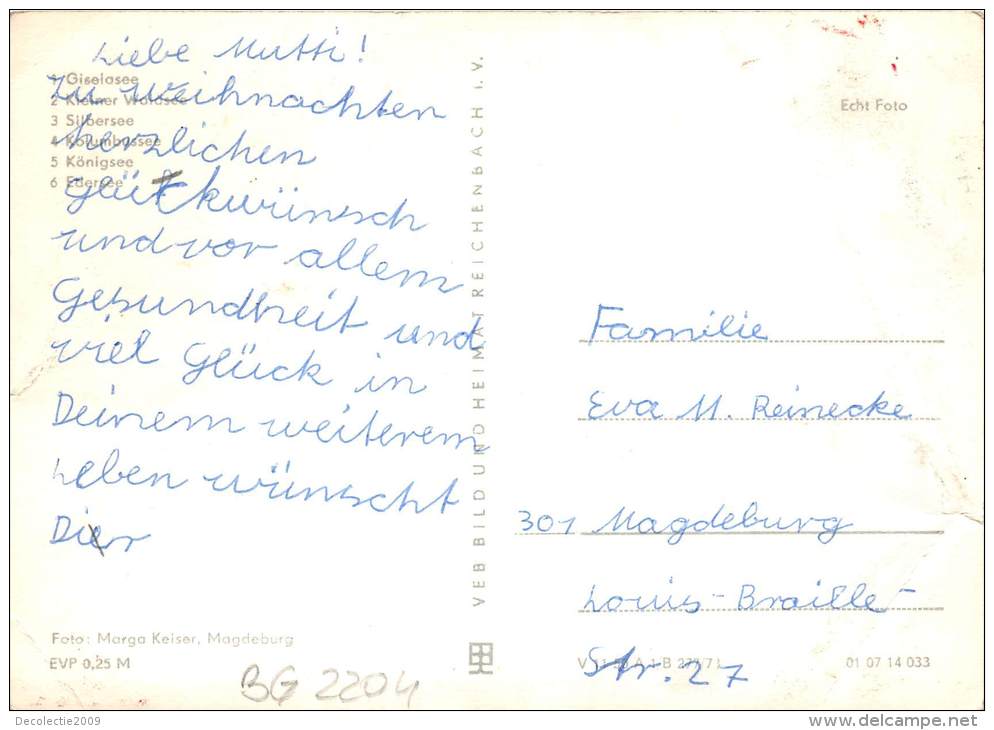 Liebe Mutti!
Zu weihnachten
herzlichen
Glückwünsch
und vor allem
Gesundheit und
viel Glück in
Deinem weiterem
Leben wünscht
Dier
1 Giselasee
2 Kleiner Waldsee
3 Silbersee
4 Kolumbussee
5 Königsee
6 Edersee
Foto: Marga Keiser, Magdeburg
EVP 0,25 M
BG 2204
VEB BILD UND HEIMAT REICHENBACH I. V.
Echt Foto
Familie
Eva M. Reinecke
301 Magdeburg
Louis-Braille-
Str. 27
A 1 B 277/71
01 07 14 033
Decolectie2009
www.delcampe.net